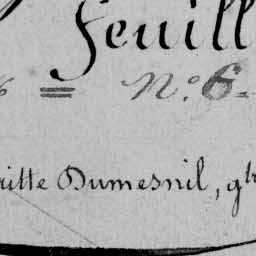 feuill
= N° 6.
ritte Dumesnil, g